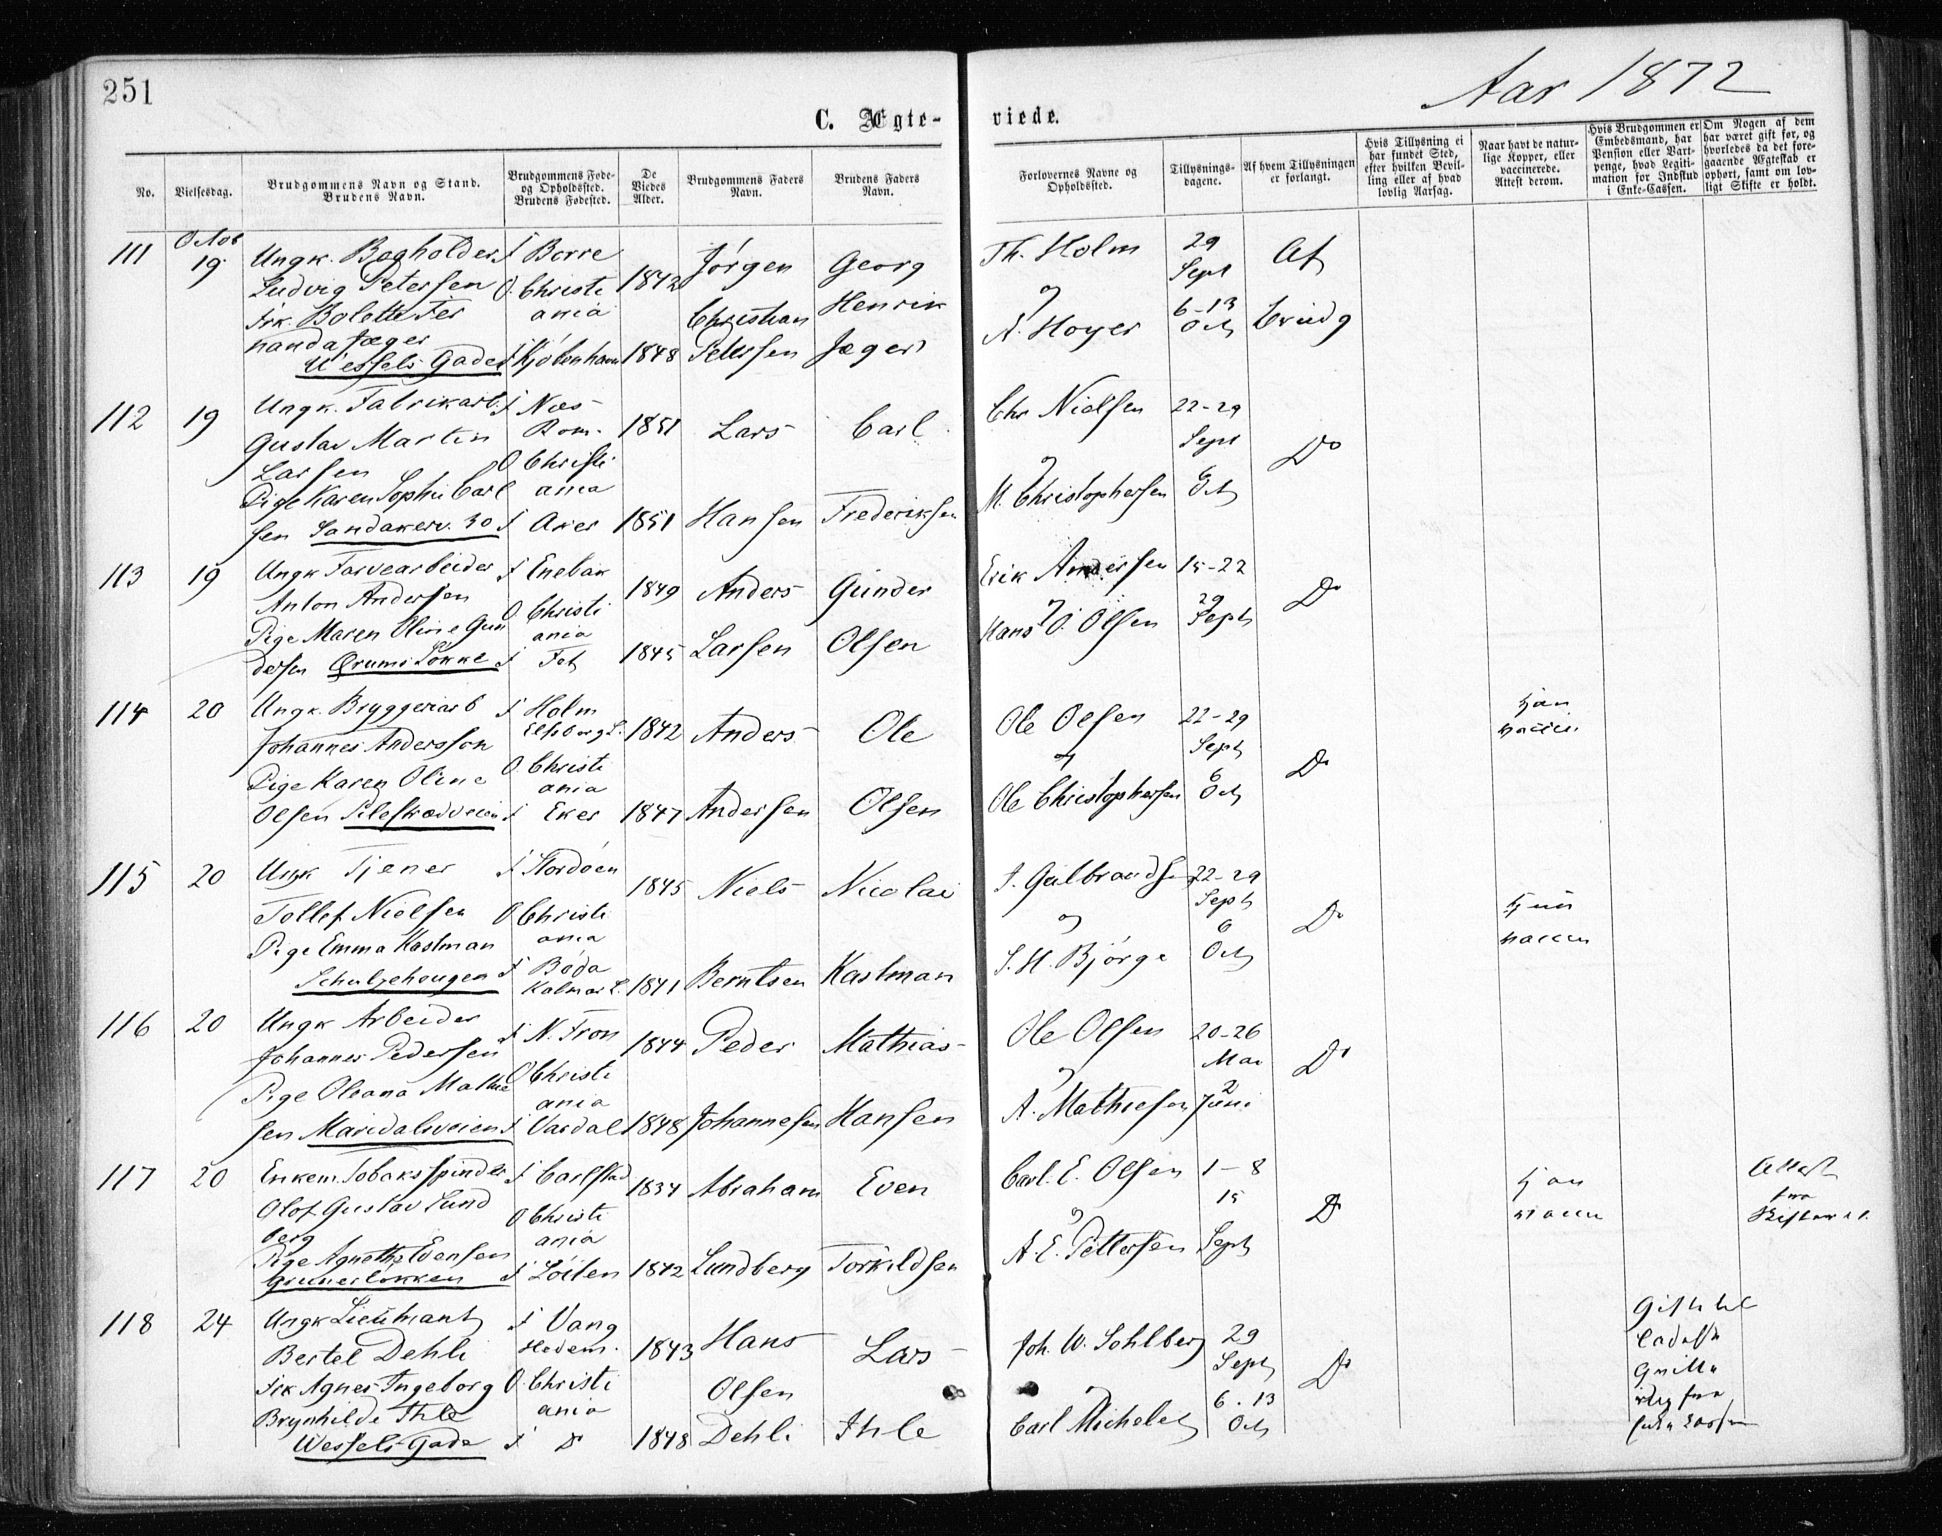 251
Aar 1872
C. Ægte-
viede.
No.
Vielsesdag.
Brudgommens Navn og Stand.
Brudens Navn.
Brudgommens Føde-
og Opholdssted.
Brudens Fødested.
De
Viedes
Alder.
Brudgommens Faders
Navn.
Brudens Faders
Navn.
Forlovernes Navne og
Opholdssted.
Tillysnings-
dagene.
Af hvem Tillysningen
er forlangt.
Hvis Tillysning ei
har fundet Sted,
efter hvilken Bevil-
ling eller af hvad
lovlig Aarsag.
Naar havt de natur-
lige Kopper, eller
vaccinerede.
Attest derom.
Hvis Brudgommen er
Embedsmand, har
Pension eller Vart-
penge, hvad Legiti-
mation for Indskud
i Enke-Cassen.
Om Nogen af dem
har været gift før, og
hvorledes da det fore-
gaaende Ægteskab er
ophørt, samt om lov-
ligt Skifte er holdt.
111 Octob 19
Ungk. Bogholder
Ludvig Petersen
Frk. Bolette Fer
nanda Jæger
Wessels Gade
f Borre
O. Christi
ania
f Kjøbenhavn
1842
1848
Jørgen
Christian
Petersen
Georg
Henrik
Jæger
Th. Holm
A. Hoyer
29
Sept
6-13
Oct
Af
Brudg
112 19
Ungk. Fabrikarb.
Gustav Martin
Larsen
Pige Karen Sophie Carl
sen Sandakerv. 30
f Næs
Rom.
O Christi
ania
f Aker
1851
1851
Lars
Hansen
Carl
Frederiksen
Chr Nielsen
M. Christophersen
22-29
Sept
6
Oct
Do
113 19
Ungk Farvearbeider
Anton Andersen
Pige Maren Oline Gun
dersen Ørums Løkke
f Enebak
O Christi
ania
f Fet
1849
1845
Anders
Larsen
Gunder
Olsen
Erik Andersen
Hans O. Olsen
15-22
29
Sept
Do
114 20
Ungk. Bryggeriarb
Johannes Andersson
Pige Karen Oline
Olsen Pilestrædveien
f Holm
Elfsborg L.
O Christi
ania
f Eker
1842
1847
Anders
Andersen
Ole
Olsen
Ole Olsen
Ole Christophersen
22-29
Sept
6
Oct
Do
115 20
Ungk Tjener
Tollef Nielsen
Pige Emma Kastman
Schultzehougen
f Stordøen
O Christi
ania
f Böda
Kalmar L.
1845
1841
Niels
Berntsen
Nicolai
Kastman
J. Gulbrandsen
S. H. Bjørge
22-29
Sept
6
Oct
Do
116 20
Ungk Arbeider
Johannes Pedersen
Pige Oleana Mathie
sen Maridalsveien
f N. Fron
O Christi
ania
f Vardal
1844
1848
Peder
Johannesen
Mathias
Hansen
Ole Olsen
A. Mathiesen
20-26
Mai
2
Juni
Do
117 20
Enkem. Tobaksspinder
Olof Gustav Lund
berg
Pige Agnethe Evensen
Grünerløkken
f Carlstad
O Christi
ania
f Løiten
1834
1842
Abraham
Lundberg
Even
Torkildsen
Carl. E. Olsen
A. E. Pettersen
1-8
15
Sept
Do
Attest
fra
Skifteret.
118 24
Ungk Lieutnant
Bertel Dehli
Frk Agnes Ingeborg
Brynhilde Ihle
Wessels Gade
f Vang
Hedem.
O. Christi
ania
f Do
1843
1848
Hans
Olsen
Dehli
Lars
Ihle
Joh. W. Sohlberg
Carl Michelet
29
Sept
6.13
Oct
Do